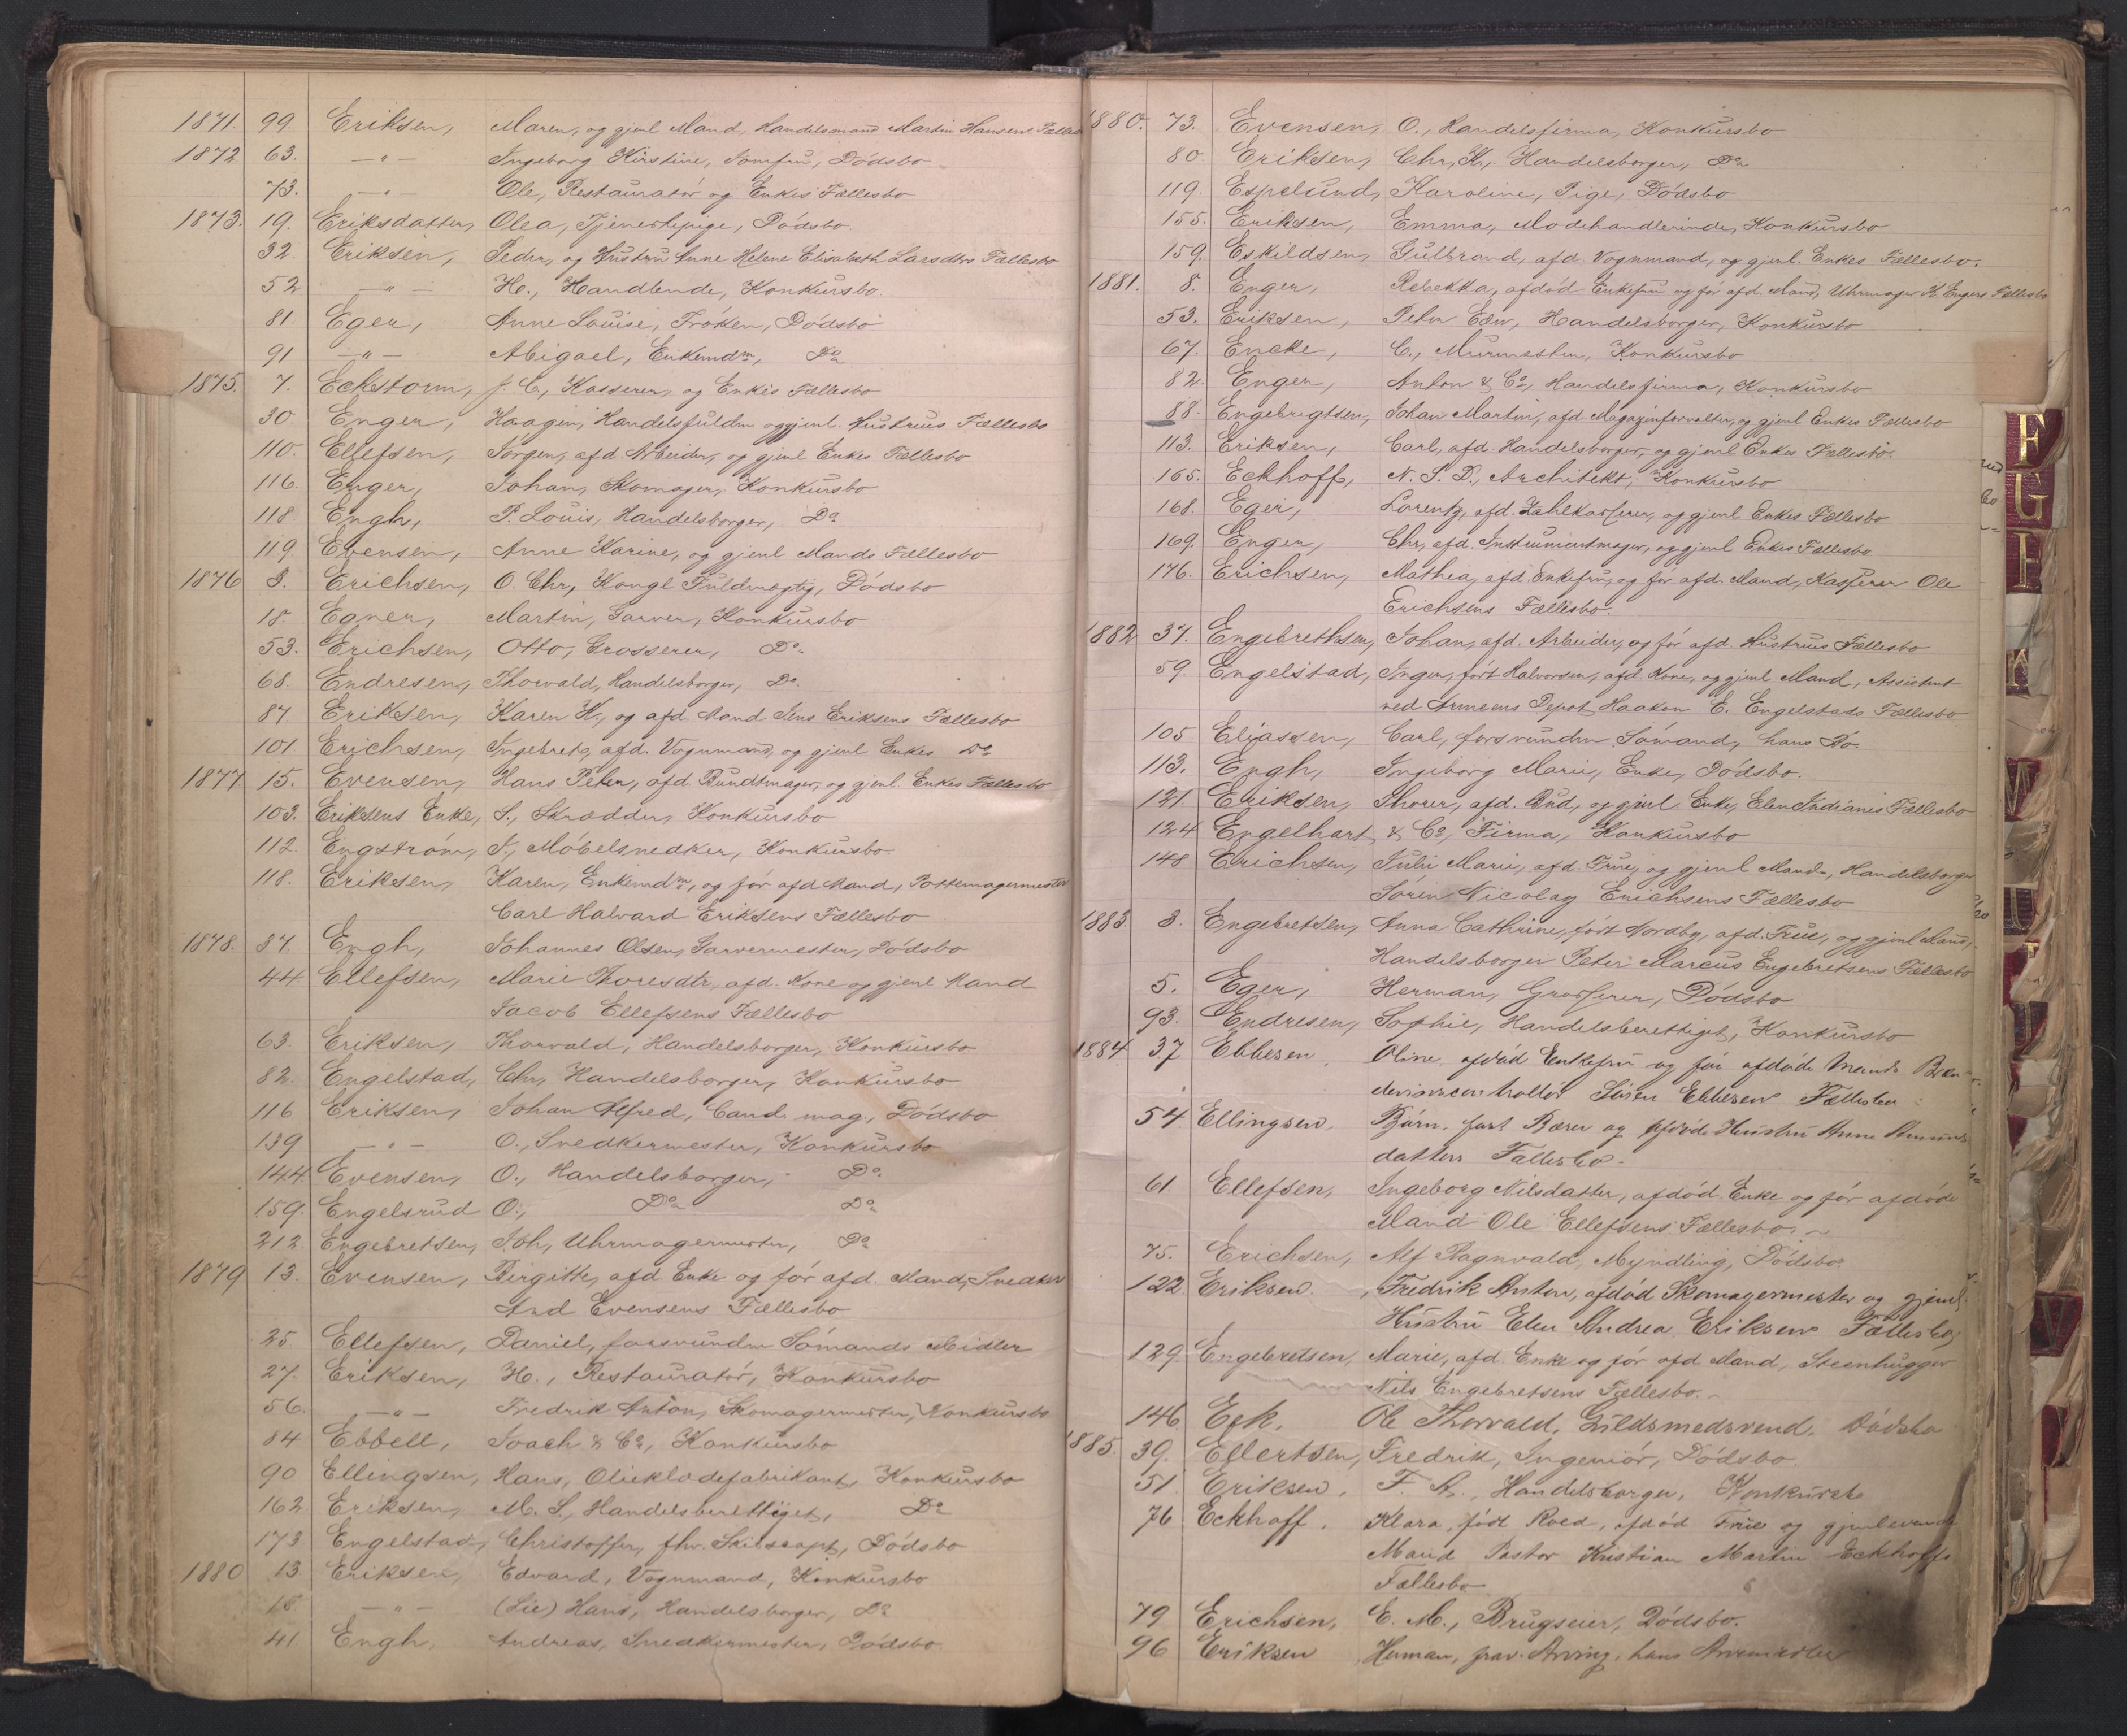 1871. 99 Eriksen, Maren, og gjenl Mand, Handelsmand Martin Hansens
1872 63. —"— Ingeborg Kirstine, Jomfru, Dödsbo
73. —"— Ole, Restauratör og Enkes Fællesbo
1873. 19. Eriksdatter, Olea, Tjenestepige, Dödsbo.
32. Eriksen, Peder, og Hustru Anne Helene Elisabeth Larsdtrs Fællesbo
52 —"— H., Handlende, Konkursbo.
81. Eger, Anne Louise, Fröken, Dödsbo
91 —"— Abigael, Enkemdm, Do
1875. 7. Eckstorm, J. C, Kasserer, og Enkes Fællesbo
30 Enger, Haagen, Handelsfuldm og gjenl. Hustrues Fællesbo
110. Ellefsen, Jörgen, afd Arbeider, og gjenl Enkes Fællesbo
116. Enger, Johan, Skomager, Konkursbo
118. Engh, P. Louis, Handelsborger, Do
119. Evensen, Anne Karine, og gjenl Mands Fællesbo
1876 3. Erichsen, O. Chr, Kongl Fuldmægtig, Dödsbo
18. Egner, Martin, Garver, Konkursbo
53. Erichsen, Otto, Grosserer, Do
68. Endresen, Thorvald, Handelsborger, Do
87 Eriksen, Karen K., og afd. Mand Jens Eriksens Fællesbo
101. Erichsen, Ingebret, afd. Vognmand, og gjenl Enkes Do
1877. 15. Evensen, Hans Peter, afd. Bundtmager, og gjenl. Enkes Fællesbo
103. Eriksens Enke, S., Skrædder, Konkursbo
112. Engström, J., Möbelsnedker, Konkursbo.
118. Eriksen, Karen, Enkemdm, og för afd Mand, Pottemagermester
Carl Halvard Eriksens Fællesbo
1878. 37. Engh, Johannes Olsen, Garvermester, Dödsbo
44 Ellefsen, Marie Thoresdtr, afd. Kone og gjenl Mand
Jacob Ellefsens Fællesbo
63. Eriksen, Thorvald, Handelsborger, Konkursbo
82. Engelstad, Chr, Handelsborger, Konkursbo
116 Eriksen, Johan Alfred, Cand. mag., Dödsbo
139 —"— O., Snedkermester, Konkursbo
144. Evensen, O., Handelsborger, Do
159. Engelsrud O., Do Do
212. Engebretsen, Joh, Uhrmagermester, Do
1879 13. Evensen, Birgitte, afd Enke og för afd. Mand, Snedker
And Evensens Fællesbo
25 Ellefsen, Daniel, forsvunden Sömands Midler
27. Eriksen, H., Restauratör, Konkursbo
56. —"— Fredrik Anton, Skomagermester, Konkursbo
84 Ebbell, & Co, Konkursbo
90 Ellingsen, Hans, Olieklædefabrikant, Konkursbo
162 Eriksen, M. S., Handelsberettiget, Do
173 Engelstad, Christoffer, fhv. Skibscapt, Dödsbo
1880 13 Eriksen, Edvard, Vognmand, Konkursbo
18 —"— (Lie) Hans, Handelsborger, Do
41 Engh, Andreas, Snedkermester, Dödsbo
1880. 73. Evensen, O., Handelsfirma, Konkursbo
80. Eriksen, Chr, K., Handelsborger, Do
119. Espelund, Karoline, Pige, Dödsbo
155. Eriksen, Emma, Modehandlerinde, Konkursbo
159. Eskildsen, Gulbrand, afd. Vognmand, og gjenl. Enkes Fællesbo.
1881. 8. Enger, Rebekka, afdöd Enkefru og för afd. Mand, Uhrmager K. Engers Fællesbo
53. Eriksen, Peter Edw, Handelsborger, Konkursbo
67. Encke, C., Murmester, Konkursbo
82. Enger, Anton & Co, Handelsfirma, Konkursbo
88. Engebrigtsen, Johan Martin, afd. Magazinforvalter, og gjenl Enkes Fællesbo
113. Eriksen, Carl, afd. Handelsborger, og gjenl Enkes Fællesbo.
165. Eckhoff, N. S. D., Architekt, Konkursbo
168. Eger, Lorentz, afd. Zahlkasserer, og gjenl Enkes Fællesbo
169. Enger, Chr, afd. Instrumentmager, og gjenl Enkes Fællesbo
176. Erichsen, Mathea, afd. Enkefru, og for afd. Mand, Kasserer Ole
Erichsens Fællesbo.
1882 37. Engebrethsen, Johan, afd. Arbeider, og för afd. Hustrues Fællesbo
59. Engelstad, Inger, födt Halvorsen, afd. Kone, og gjenl Mand, Assistent
ved Armeens Depot Haakon E. Engelstads Fællesbo
105 Eliassen, Carl, forsvunden Sömand, hans Bo.
113. Engh, Ingeborg Marie, Enke, Dödsbo.
121. Eriksen, Thorer, afd. Bud, og gjenl. Enke, Elen Indianes Fællesbo
124 Engelhart & Co, Firma, Konkursbo
148 Erichsen, Julie Marie, afd. Frue, og gjenl Mand, Handelsborger
Sören Nicolay Erichsens Fællesbo
1883. 3. Engebretsen, Anna Cathrine, födt Nordby, afd. Frue, og gjenl Mand,
Handelsborger Peter Marcus Engebretsens Fællesbo
5. Eger, Herman, Grosserer, Dödsbo
93. Endresen, Sophie, Handelsberettiget, Konkursbo
1884. 37 Ebbesen, Oline, afdöd Enkefru og för afdöde Mand
Sören Ebbesens Fællesbo
54. Ellingsen, Björn, og afdöde Hustru Anne
datters Fællesbo.
61 Ellefsen, Ingeborg Nilsdatter, afdöd Enke og för afdöde
Mand Ole Ellefsens Fællesbo.
75. Erichsen, Alf Ragnvald, Myndling, Dödsbo
122. Eriksen, Fredrik Anton, afdöd Skomagermester og gjenl
Hustru Elen Andrea Eriksens Fællesbo
129. Engebretsen, Marie, afd. Enke og för afd Mand, Steenhugger
Nils Engebretsens Fællesbo.
146. Eek, Ole Thorvald, Guldsmedsvend, Dödsbo
1885. 39. Ellertsen, Fredrik, Ingeniör, Dödsbo.
51. Eriksen, F. A., Handelsborger, Konkursbo
76 Eckhoff, Klara, född Roed, afdöd Frue og gjenlevende
Mand Pastor Kristian Martin Eckhoffs
Fællesbo
79 Erichsen, E. M., Brugseier, Dödsbo.
96 Eriksen Herman, Arving, hans Arvemidler
F
G
I
V